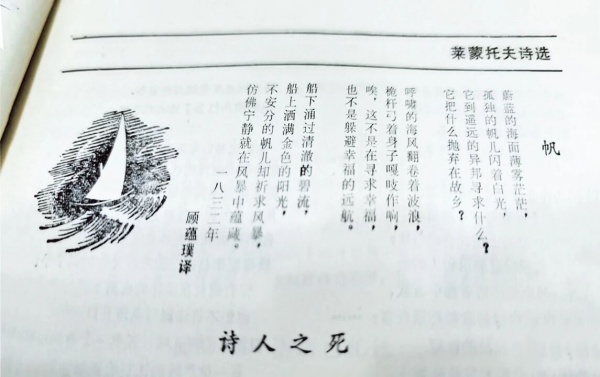 莱蒙托夫诗选
帆
蔚蓝的海面薄雾茫茫，
孤独的帆儿闪着白光，
它到遥远的异邦寻求什么？
它把什么抛弃在故乡？
呼啸的海风翻卷着波浪，
桅杆弓着身子嘎吱作响，
唉，这不是在寻求幸福，
也不是躲避幸福的远航。
船下涌过清澈的碧流，
船上洒满金色的阳光，
不安分的帆儿却祈求风暴，
仿佛宁静就在风暴中蕴藏。
一八三二年
顾蕴璞译
诗人之死